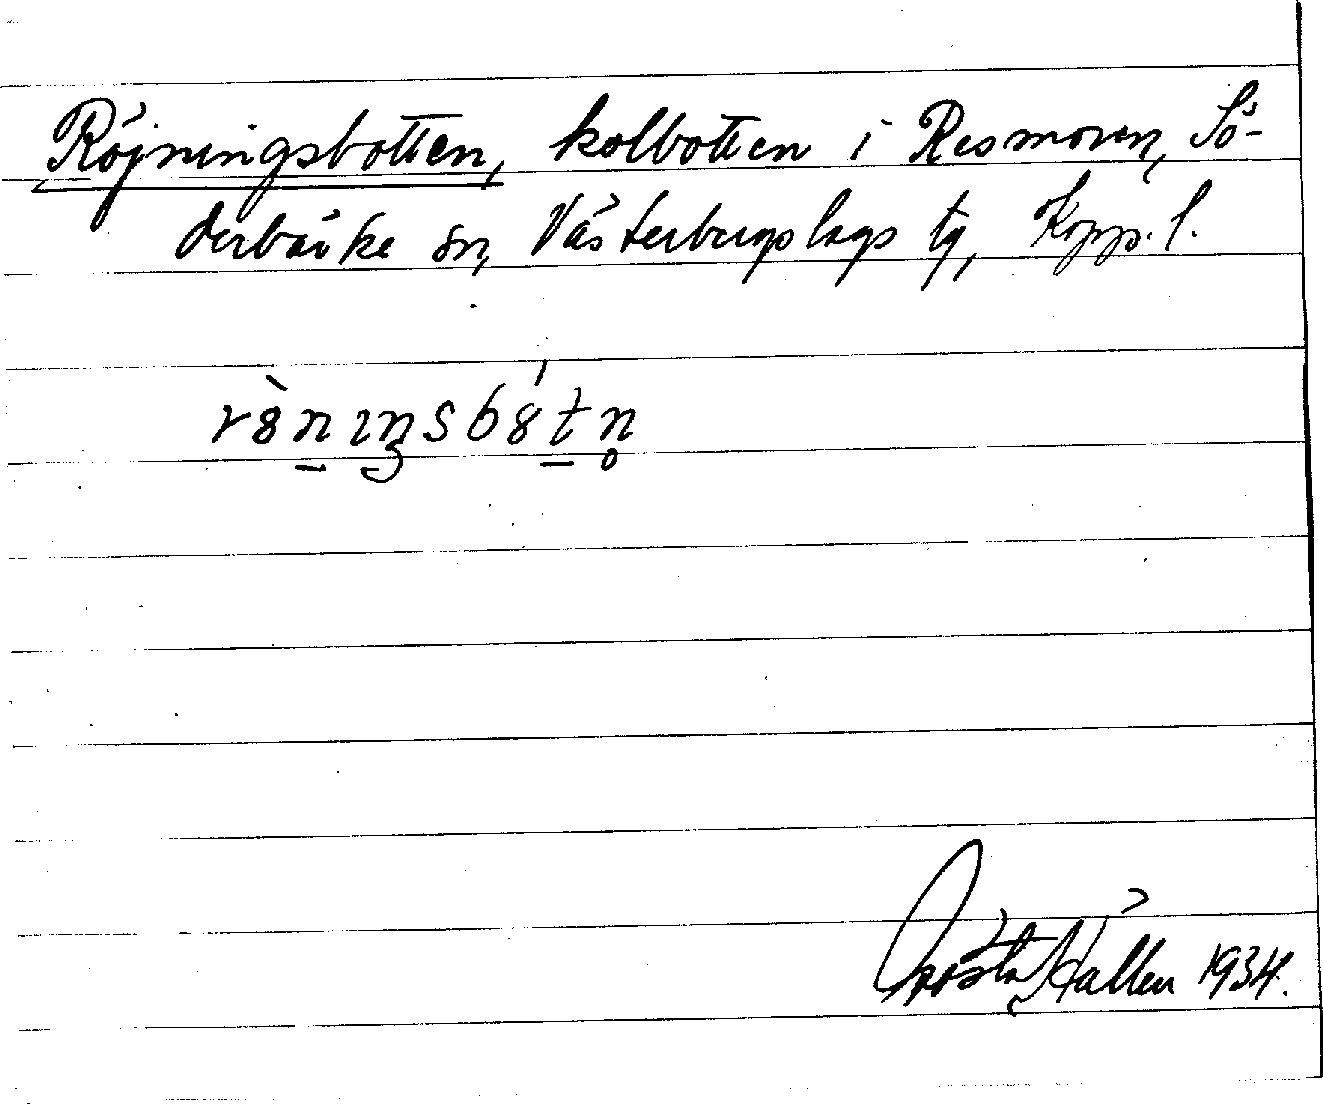 Röjningsbotten, kolbotten i Resmoren, Sö-
derbärke sn, Västerbergslags tg, Kopp. l.
rȣ̀nıŋsbȣ́tn̥
Gösta Hållen 1934.